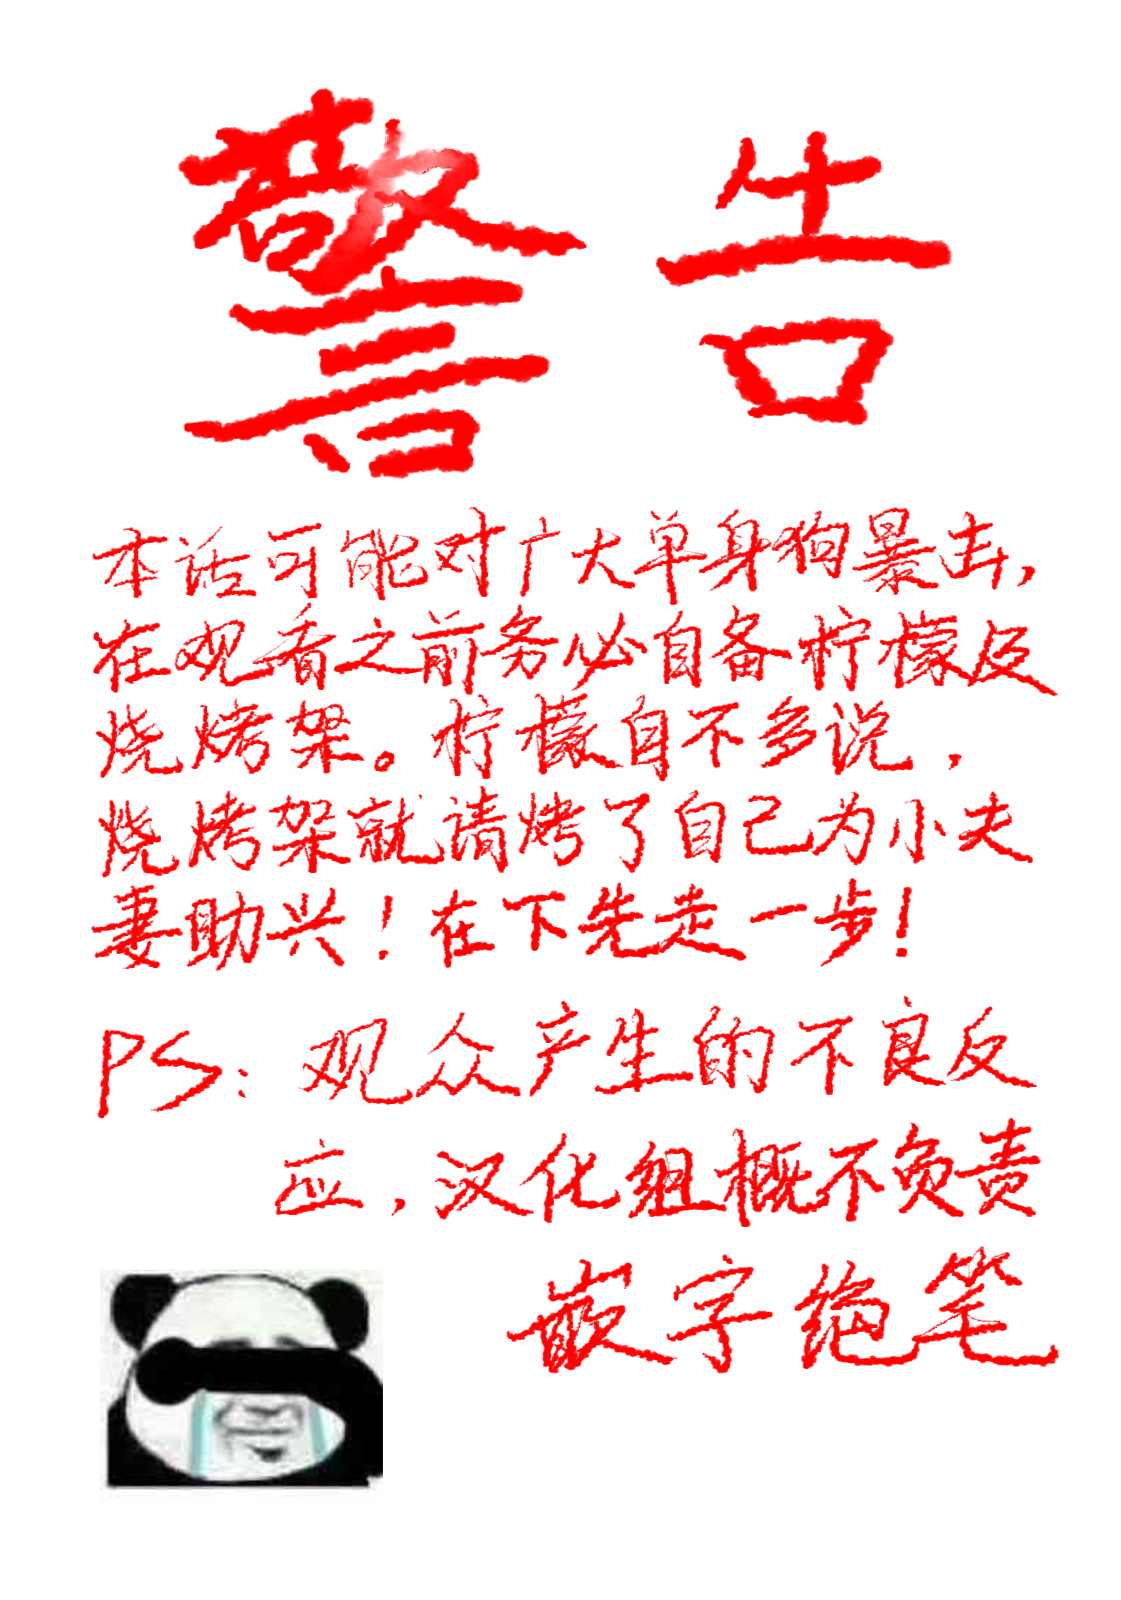 警告
本话可能对广大单身狗暴击,
在观看之前务必自备柠檬及
烧烤架。柠檬自不多说,
烧烤架就请烤了自己为小夫
妻助兴!在下先走一步!
PS:观众产生的不良反
应,汉化组概不负责
嵌字绝笔